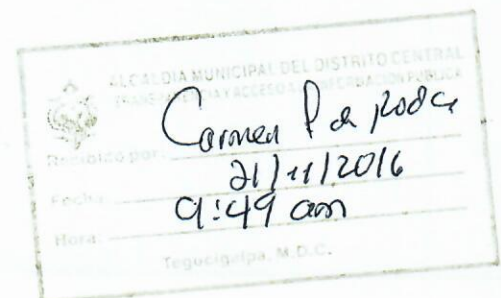 ALCALDIA MUNICIPAL DEL DISTRITO CENTRAL
TRANSPARENCIA Y ACCESO A LA INFORMACION PUBLICA
Recibido por: Carmen P de
Fecha: 21/11/2016
Hora: 9:49 am
Tegucigalpa, M.D.C.